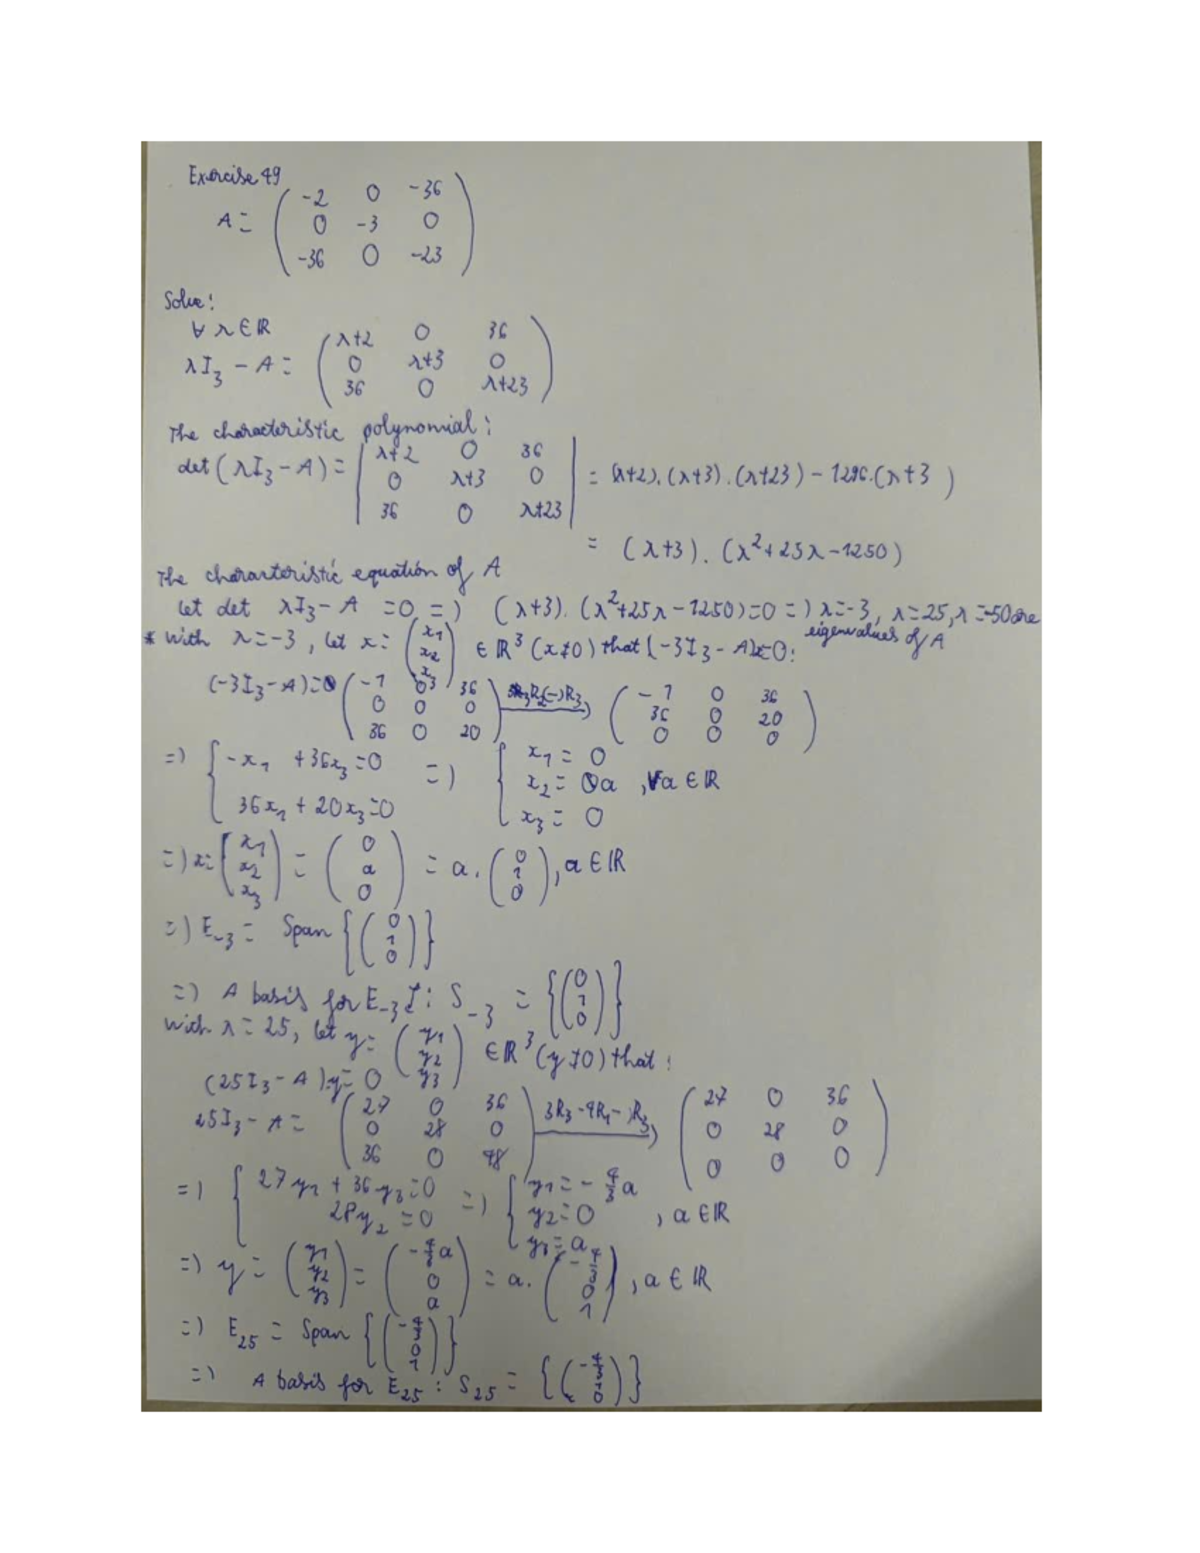 Exercise 49
A = ( -2 0 -36
0 -3 0
-36 0 -23 )
Solve:
∀ λ ∈ ℝ
λI₃ - A = ( λ+2 0 36
0 λ+3 0
36 0 λ+23 )
The characteristic polynomial:
det(λI₃ - A) = | λ+2 0 36
0 λ+3 0
36 0 λ+23 | = (λ+2).(λ+3).(λ+23) - 1296.(λ+3)
= (λ+3).(λ²+25λ-1250)
The characteristic equation of A
let det λI₃ - A = 0 =) (λ+3).(λ²+25λ-1250)=0 =) λ=-3, λ=25, λ=-50 are
eigenvalues of A
* with λ=-3, let x = ( x₁
x₂
x₃ ) ∈ ℝ³ (x≠0) that (-3I₃ - A)x=0:
(-3I₃-A)=0 ( -1 0 36
0 0 0
36 0 20 ) R₂(-)R₃ → ( -1 0 36
36 0 20
0 0 0 )
=) { -x₁ + 36x₃ = 0
36x₁ + 20x₃ = 0 =) { x₁ = 0
x₂ = a , ∀a ∈ ℝ
x₃ = 0
=) x = ( x₁
x₂
x₃ ) = ( 0
a
0 ) = a. ( 0
1
0 ), a ∈ ℝ
=) E₋₃ = Span { ( 0
1
0 ) }
=) A basis for E₋₃ : S₋₃ = { ( 0
1
0 ) }
with λ = 25, let y = ( y₁
y₂
y₃ ) ∈ ℝ³ (y≠0) that:
(25I₃ - A).y = 0
25I₃ - A = ( 27 0 36
0 28 0
36 0 48 ) 3R₃-4R₁-)R₃ → ( 27 0 36
0 28 0
0 0 0 )
=) { 27y₁ + 36y₃ = 0
28y₂ = 0 =) { y₁ = -4/3 a
y₂ = 0 , a ∈ ℝ
y₃ = a
=) y = ( y₁
y₂
y₃ ) = ( -4/3 a
0
a ) = a. ( -4/3
0
1 ), a ∈ ℝ
=) E₂₅ = Span { ( -4/3
0
1 ) }
=) A basis for E₂₅ : S₂₅ = { ( -4/3
1
0 ) }